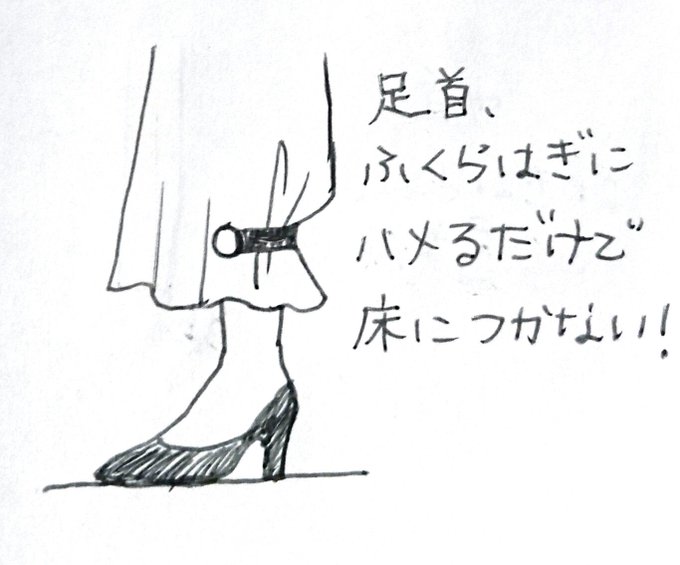 足首、
ふくらはぎに
ハメるだけで
床につかない!